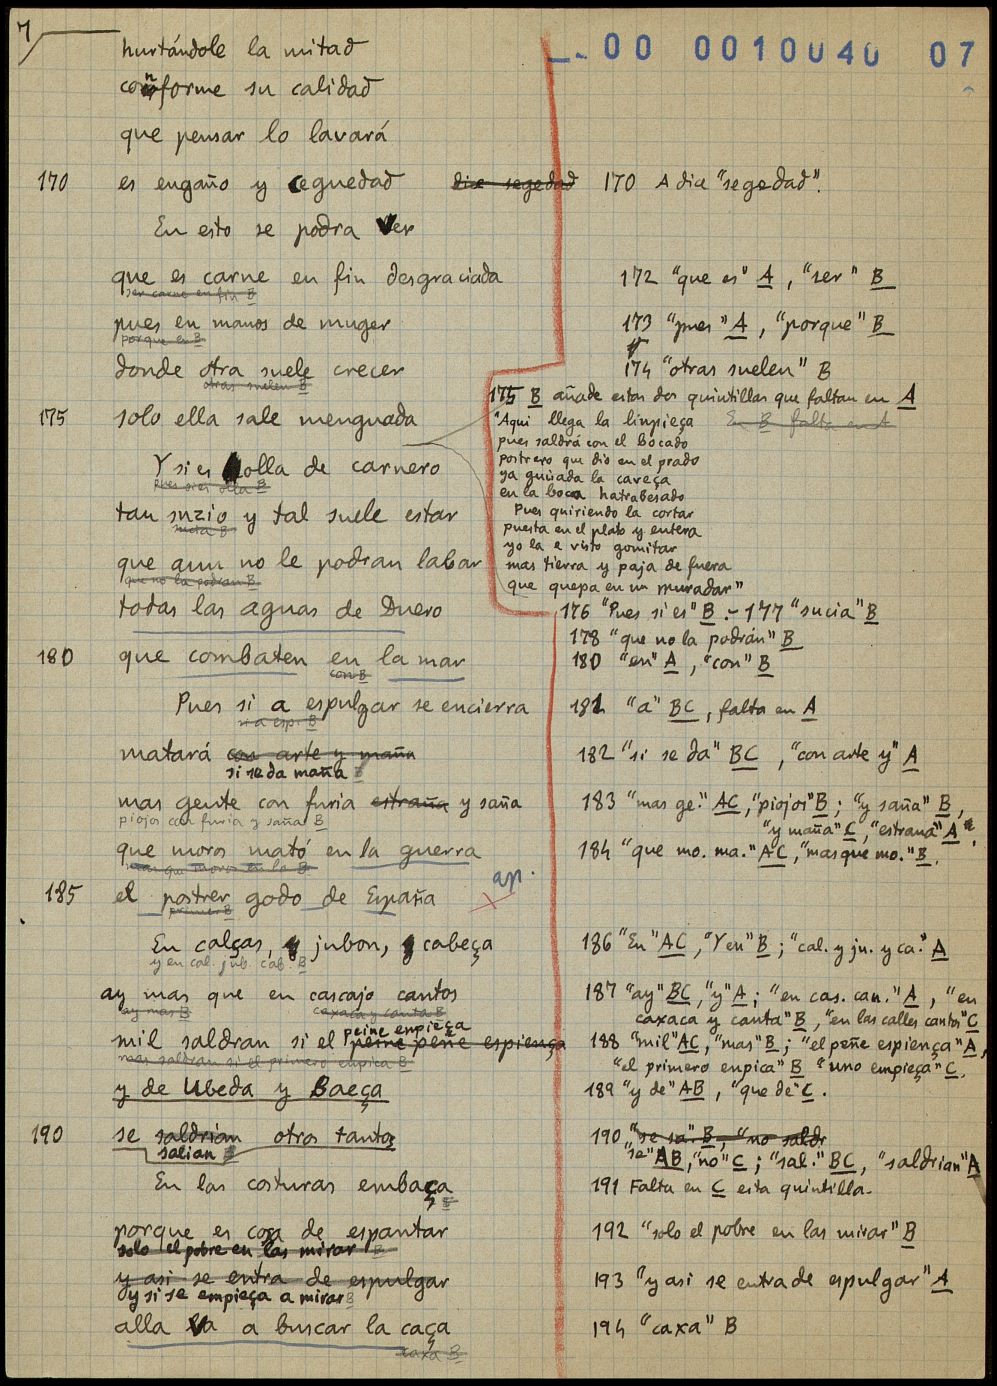 7
00 0010040 07
hurtándole la mitad
conforme su calidad
que pensar lo lavará
170 es engaño y ceguedad dice segedad
170 A dice "segedad".
En esto se podra Ver
que es carne en fin desgraciada
ser carne en fin B
172 "que es" A, "ser" B
pues en manos de muger
porque en B
173 "pues" A, "porque" B
donde otra suele crecer
otras suelen B
174 "otras suelen" B
175 solo ella sale menguada
175 B añade estas dos quintillas que faltan en A
"Aqui llega la limpieça
En B falta en A
pues saldrá con el bocado
postrero que dio en el prado
ya guisada la caveça
en la boca hatrabesado
Pues quiriendo la cortar
puesta en el plato y entera
yo la e visto gomitar
mas tierra y paja de fuera
que quepa en un muradar"
Y si es olla de carnero
Pues si es olla B
tan suzio y tal suele estar
sucia B
que aun no le podran labar
que no la podran B
todas las aguas de Duero
176 "Pues si es" B - 177 "sucia" B
178 "que no la podrán" B
180 que combaten en la mar
con B
180 "en" A, "con" B
Pues si a espulgar se encierra
si a esp. B
181 "a" BC, falta en A
matará con arte y maña
si se da maña B
182 "si se da" BC, "con arte y" A
mas gente con furia estraña y saña
piojos con furia y saña B
183 "mas ge." AC, "piojos" B; "y saña" B,
"y maña" C, "estraña" A.
que moros mató en la guerra
mas que moros en la B
184 "que mo. ma." AC, "mas que mo." B.
ap.
185 el postrer godo de España
primer B
En calças, y jubon, y cabeça
y en cal. jub. cab. B
186 "En" AC, "Y en" B; "cal. y ju. y ca." A
ay mas que en cascajo cantos
ay mas B caxaca y canta B
187 "ay" BC, "y" A; "en cas. can." A, "en
caxaca y canta" B, "en las calles cantos" C
peine enpieça
mil saldran si el peine peñe espiença
mas saldran si el primero enpica B
188 "mil" AC, "mas" B; "el peñe espiença" A,
"el primero enpica" B "uno empieça" C.
y de Ubeda y Baeça
189 "y de" AB, "que de" C.
190 se saldrian otros tantos
salian B
190 "se sa." B, "no saldr
"se" AB, "no" C; "sal." BC, "saldrian" A
En las costuras embaça
191 Falta en C esta quintilla.
porque es cosa de espantar
solo el pobre en las mirar B
192 "solo el pobre en las mirar" B
y asi se entra de espulgar
y si se empieça a mirar B
193 "y asi se entra de espulgar" A
alla va a buscar la caça
caxa B
194 "caxa" B